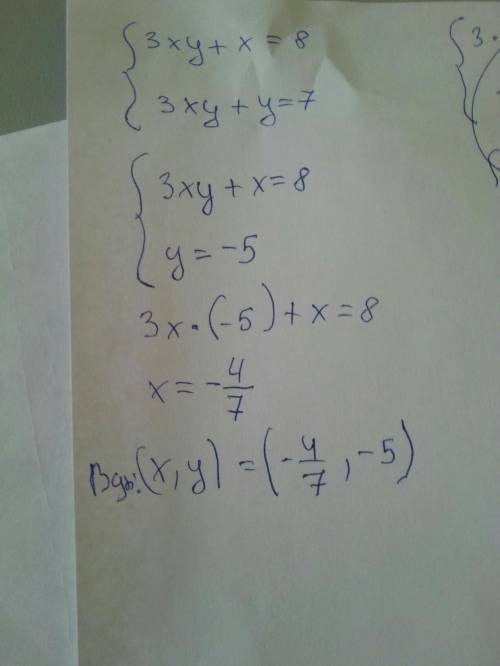 { 3xy + x = 8
{ 3xy + y = 7
{ 3xy + x = 8
{ y = -5
3x · (-5) + x = 8
x = -4/7
Вдь: (x, y) = (-4/7, -5)
{ 3 ·